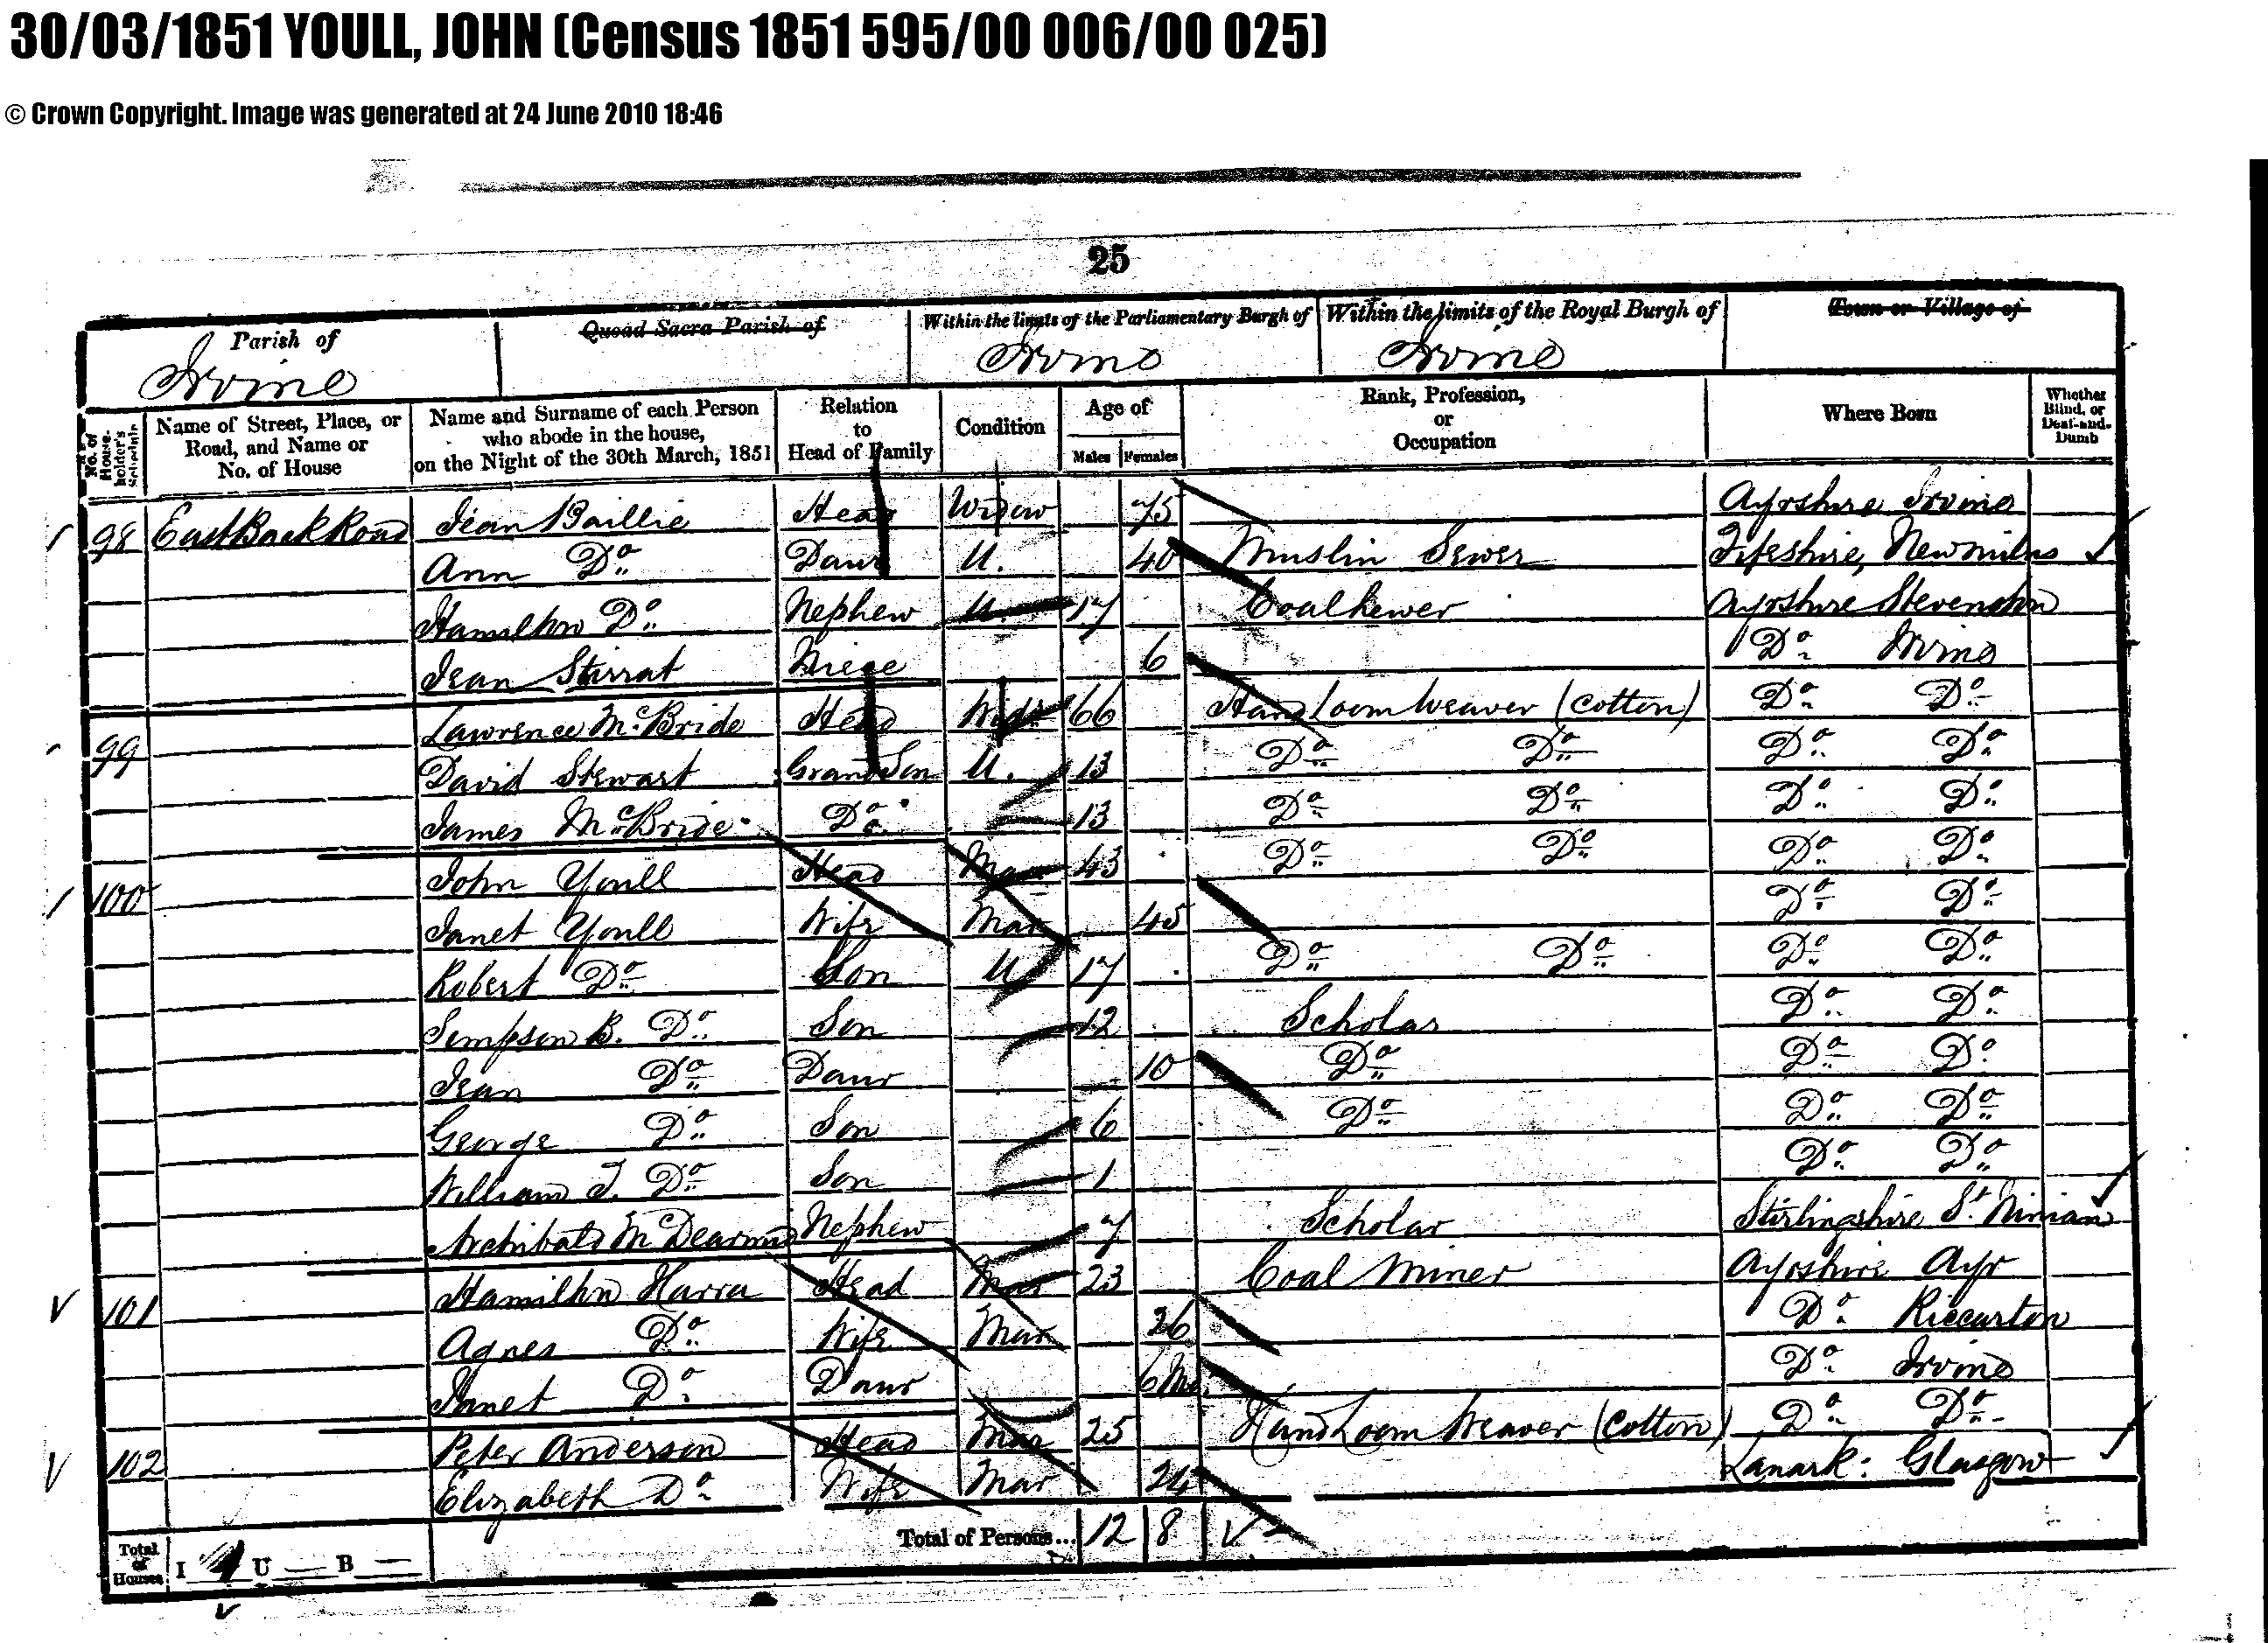 30/03/1851 YOULL, JOHN (Census 1851 595/00 006/00 025)
© Crown Copyright. Image was generated at 24 June 2010 18:46
25
Parish of Quoad Sacra Parish of Within the limits of the Parliamentary Burgh of Within the limits of the Royal Burgh of Town or Village of
Irvine Irvine Irvine
No. of House-holder's Schedule Name of Street, Place, or Road, and Name or No. of House Name and Surname of each Person who abode in the house, on the Night of the 30th March, 1851 Relation to Head of Family Condition Age of Males Females Rank, Profession, or Occupation Where Born Whether Blind, or Deaf-and-Dumb
98 East Back Road Jean Baillie Head Widow 75 Ayrshire Irvine
Ann Do Daur U. 40 Muslin Sewer Fifeshire, Newmilns
Hamilton Do Nephew U. 17 Coalhewer Ayrshire Stevenston
Jean Stirrat Niece 6 Do Irvine
99 Lawrence McBride Head Widr 66 Hand Loom Weaver (Cotton) Do Do
David Stewart Grand Son U. 13 Do Do Do Do
James McBride Do 13 Do Do Do Do
100 John Youll Head Mar 43 Do Do Do Do
Janet Youll Wife Mar 45 Do Do
Robert Do Son U 17 Do Do Do Do
Simpson B. Do Son 12 Scholar Do Do
Jean Do Daur 10 Do Do Do
George Do Son 6 Do Do Do
William J. Do Son 1 Do Do
Archibald McDearmid Nephew 7 Scholar Stirlingshire St. Ninians
101 Hamilton Harra Head Mar 23 Coal Miner Ayrshire Ayr
Agnes Do Wife Mar 26 Do Riccarton
Janet Do Daur 6 Mo. Do Irvine
102 Peter Anderson Head Mar 25 Hand Loom Weaver (Cotton) Do Do
Elizabeth Do Wife Mar 24 Lanark: Glasgow
Total of Houses I 4 U — B — Total of Persons... 12 8